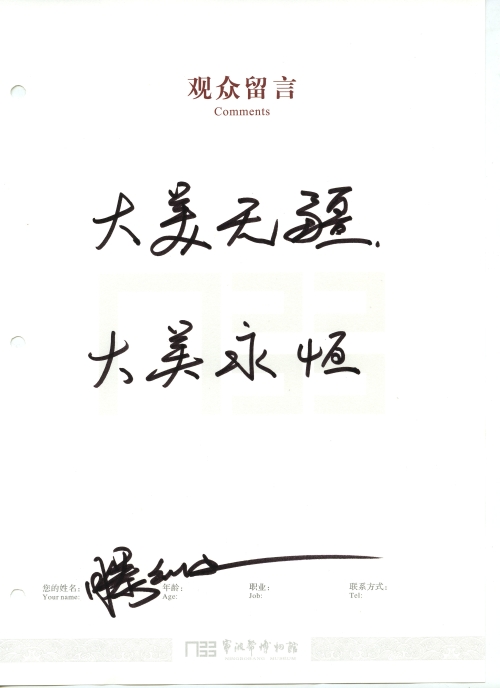 观众留言
Comments
大美无疆.
大美永恒
您的姓名: 年龄: 职业: 联系方式:
Your name: Age: Job: Tel:
常汉带博物馆